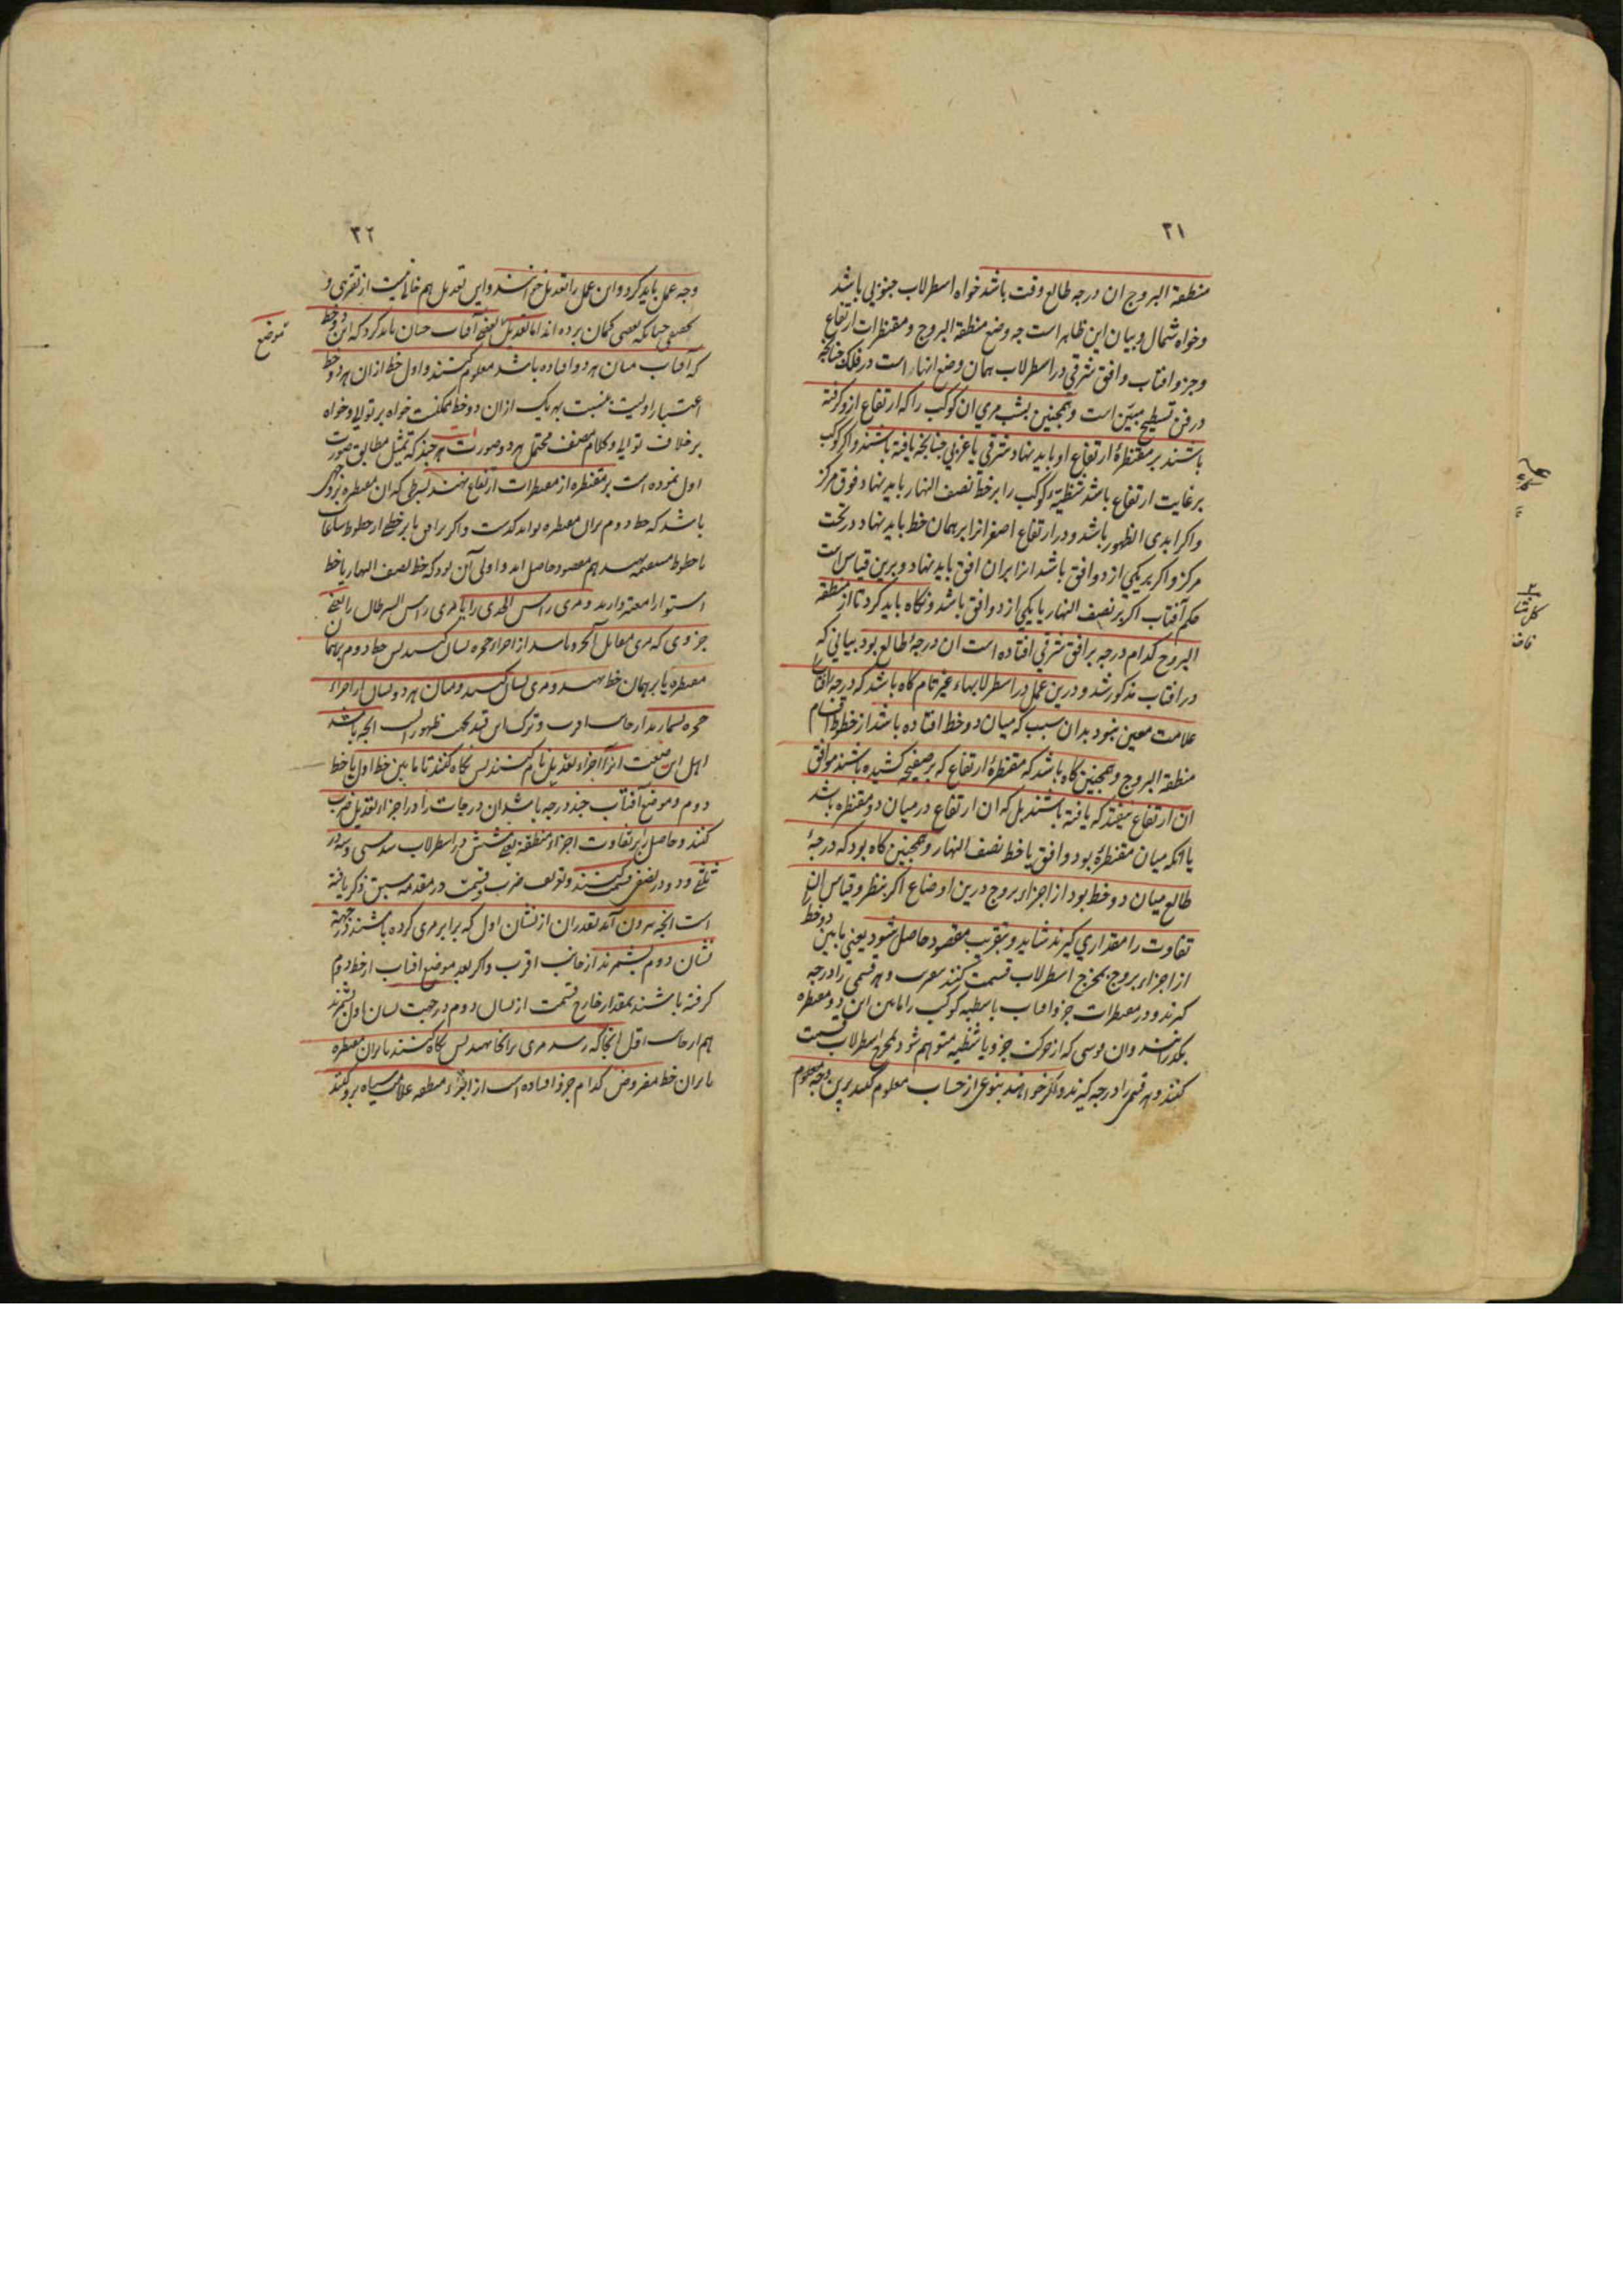 ۳۱
منطقة البروج ان درجه طالع وقت باشد خواه اسطرلاب جنوبی باشد
وخواه شمال وبیان این ظاهر است چه وضع منطقة البروج ومقنطرات ارتفاع
وجزو افتاب وافق شرقی در اسطرلاب همان وضع انهاراست در فلک چنانچه
در فن تسطیح مبیّن است وهمچنین بشب مری ان کوکب را که ارتفاع ازو گرفته
باشند بر مقنطرهٔ ارتفاع او باید نهاد شرقی یا غربی چنانچه یافته باشند واگر کوکب
بر غایت ارتفاع باشد شظیّهٔ کوکب را بر خط نصف النهار باید نهاد فوق مرکز
واگر ابدی الظهور باشد ودر ارتفاع اصغر انرا بر همان خط باید نهاد در تحت
مرکز واگر بر یکی از دو افق باشد انرا بران افق باید نهاد وبرین قیاس است
حکم آفتاب اگر بر نصف النهار یا یکی از دو افق باشد ونگاه باید کرد تا از منطقة
البروج کدام درجه بر افق شرقی افتاده است ان درجهٔ طالع بود ببیانی که
در افتاب مذکور شد ودرین عمل در اسطرلابهاء غیر تام گاه باشد که درجه افتاب
علامت معین نبود بدان سبب که میان دو خط افتاده باشد از خطوط اقسام
منطقة البروج وهمچنین گاه باشد که مقنطرهٔ ارتفاع که بر صفیحه کشیده باشند موافق
ان ارتفاع نیفتد که یافته باشند بل که ان ارتفاع در میان دو مقنطره باشد
یا انکه میان مقنطرهٔ بود وافق یا خط نصف النهار وهمچنین گاه بود که درجهٔ
طالع میان دو خط بود از اجزاء بروج درین اوضاع اگر بنظر وقیاس ان
تفاوت را مقداری گیرند شاید وبتقریب مقصود حاصل شود یعنی ما بین دو خط
از اجزاء بروج بمخرج اسطرلاب قسمت کنند وهر قسمی را درجه
گیرند ودر مقنطرات جزو افتاب یا شظیه کوکب را ما بین این دو مقنطره
بگذرانند وان قوسی که از حرکت جزو یا شظیه متوهم شود بمخرج اسطرلاب قسمت
کنند وهر قسمی را درجه گیرند واگر خواهند بنوعی از حساب معلوم کنند برین وجه معلوم
۳۲
وجه عمل باید کرد وان عمل را تعدیل خوانند واین تعدیل هم خالی نیست از تقریبی و
تحقیقی چنانکه بعضی گمان برده اند اما تعدیل یعنی آفتاب چنان باید کرد که این دو خط
که آفتاب میان هر دو افتاده باشد معلوم کنند واول خط ازان هر دو خط
اعتبار اولیت بنسبت بهر یک ازان دو خط ممکنست خواه بر توالی وخواه
بر خلاف توالی وکلام مصنف محتمل هر دو صورت است هر چند که تمثیل مطابق صورت
اول نموده است بر مقنطره از مقنطرات ارتفاع نهند بشرطی که ان مقنطره بروجهی
باشد که خط دوم بران مقنطره تواند گذشت واگر بر افق یا بر خطی از خطوط ساعات
یا خطوط مستقیمه نهند هم مقصود حاصل اید واولی آن بود که خط نصف النهار یا خط
استوا را معتبر دارند ومری راس الجدی را یا مری راس السرطان را یعنی
جزوی که مری مقابل آنجزو باشد از اجزاء حجره نشان کنند پس خط دوم بر همان
مقنطره یا بر همان خط نهند ومری نشان کنند ومیان هر دو نشان از اجزاء
حجره بشمارند از جانب اقرب وترک این قید بجهت ظهورست انچه باشد
اهل این صنعت انرا اجزاء تعدیل نام کنند پس نگاه کنند تا ما بین خط اول یا خط
دوم وموضع آفتاب چند درجه باشد ان درجات را در اجزاء تعدیل ضرب
کنند وحاصل را بر تفاوت اجزاء منطقه یعنی شش در اسطرلاب سدسی وسه در
ثلثی ودو در نصفی قسمت کنند وتعریف ضرب وقسمت در مقدمه سبق ذکر یافته
است انچه بیرون آید بقدر ان از نشان اول که برابر مری کرده باشند در جهة
نشان دوم بشمرند از جانب اقرب واگر بعد موضع افتاب از خط دوم
گرفته باشند بمقدار خارج قسمت از نشان دوم در جهت نشان اول بشمرند
هم از جانب اقل انجا که رسد مری برانجا نهند پس نگاه کنند تا بران مقنطره
یا بران خط مفروض کدام جزو افتاده است از اجزاء منطقه علامت سیاه برو کنند
موضع